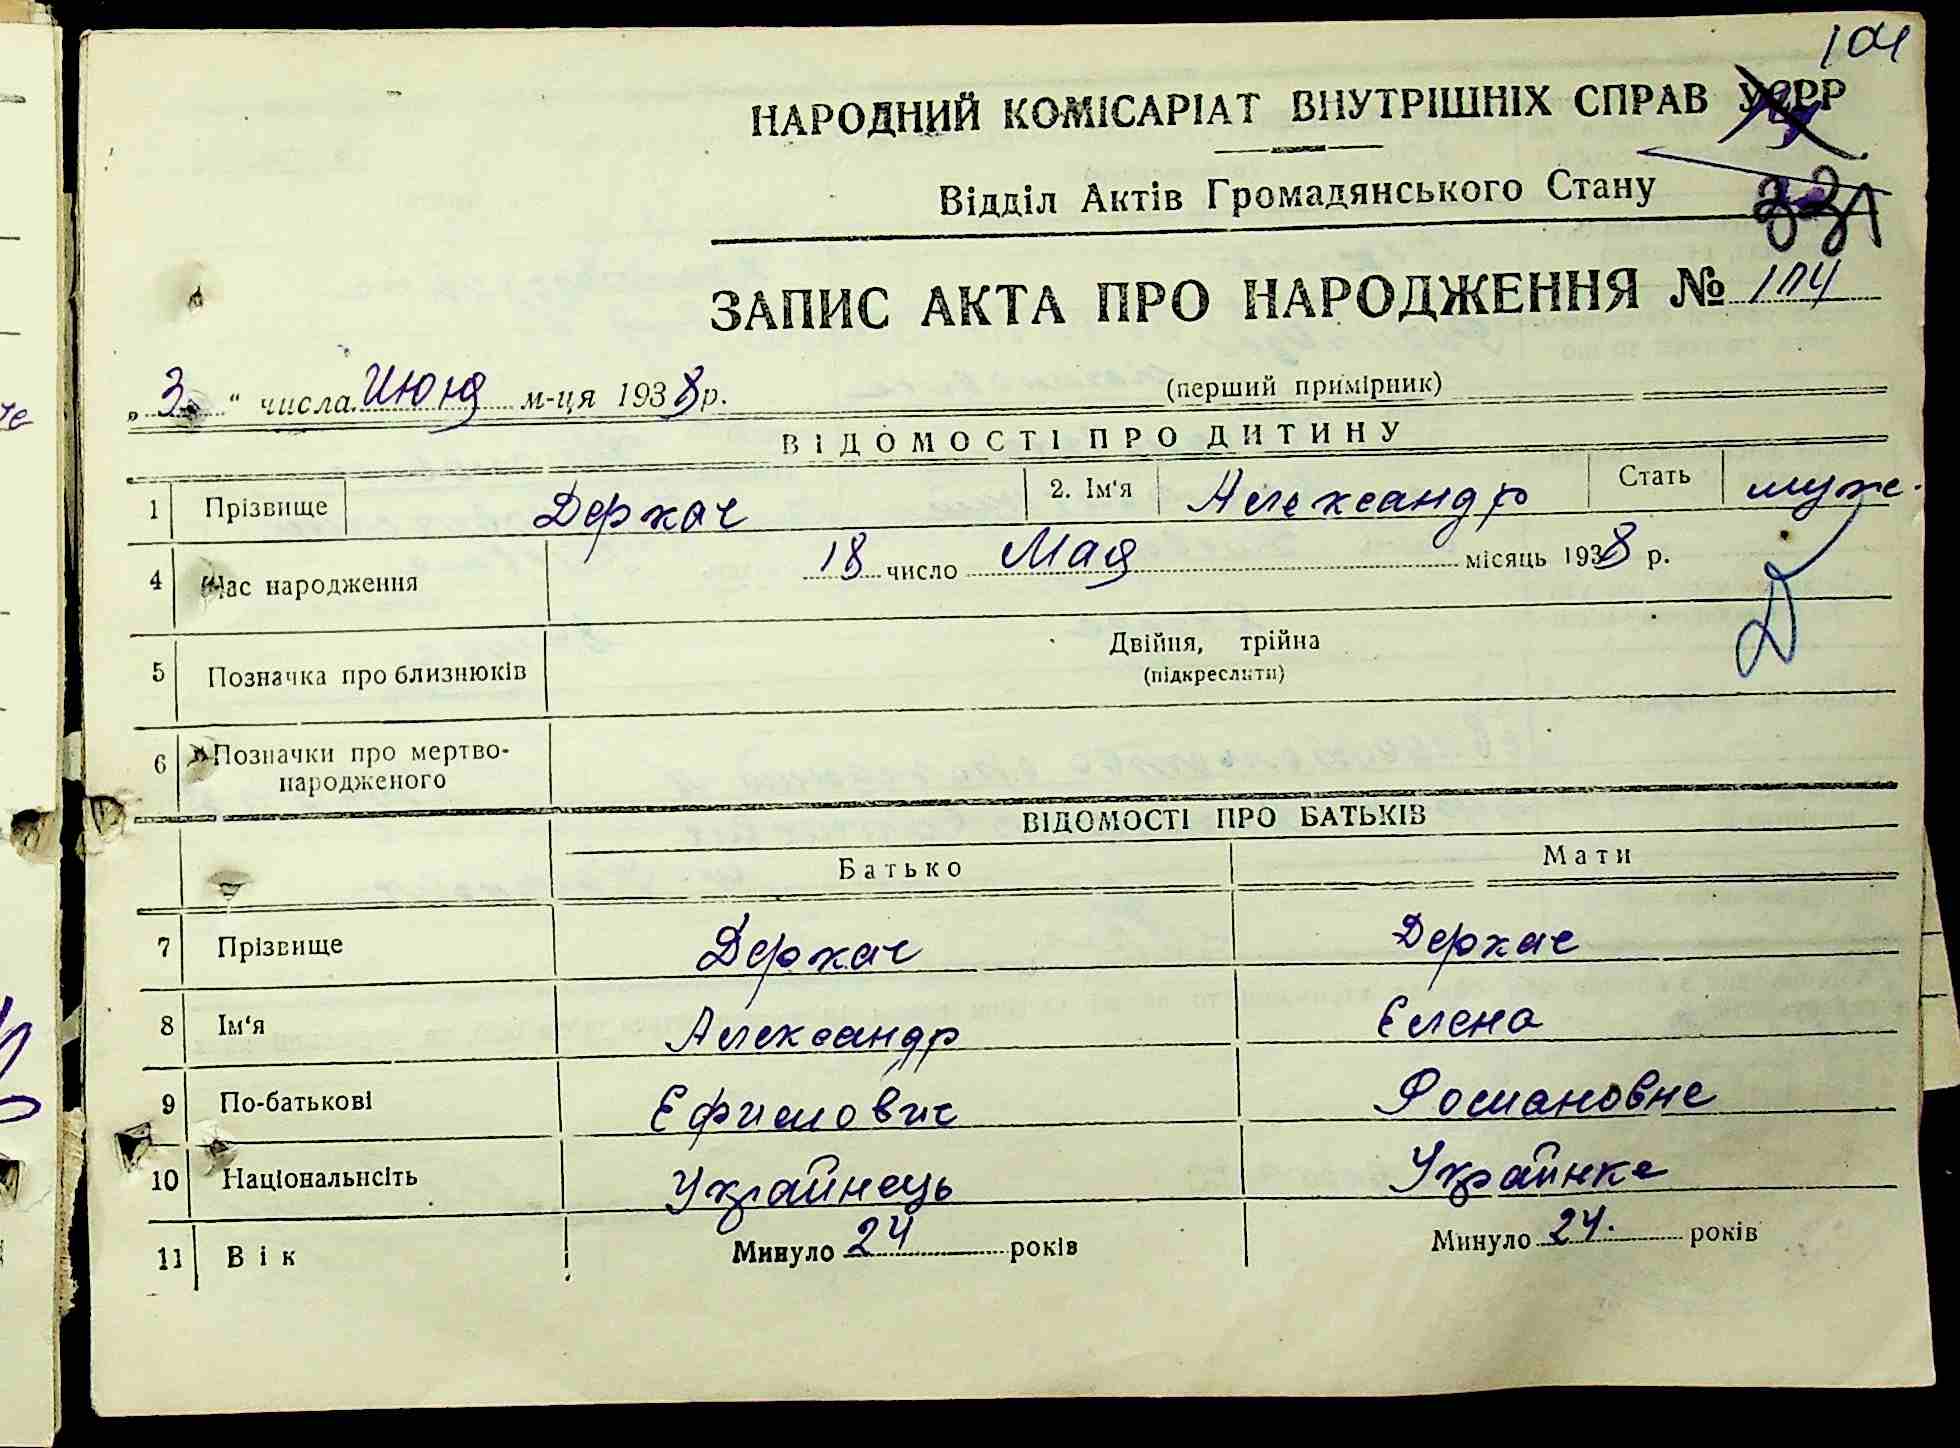 104
НАРОДНИЙ КОМІСАРІАТ ВНУТРІШНІХ СПРАВ УСРР
Відділ Актів Громадянського Стану
ЗАПИС АКТА ПРО НАРОДЖЕННЯ № 174
„ 3 “ числа Июня м-ця 1938 р. (перший примірник)
ВІДОМОСТІ ПРО ДИТИНУ
1 Прізвище Деркач 2. Ім‘я Александр Стать муж.
4 Час народження 18 число Мая місяць 1938 р.
5 Позначка про близнюків Двійня, трійна
(підкреслити)
6 Позначки про мертво-
народженого
ВІДОМОСТІ ПРО БАТЬКІВ
Батько Мати
7 Прізвище Деркач Деркач
8 Ім‘я Александр Елена
9 По-батькові Ефимович Романовна
10 Національнсіть Украйнець Украинка
11 Вік Минуло 24 років Минуло 24. років